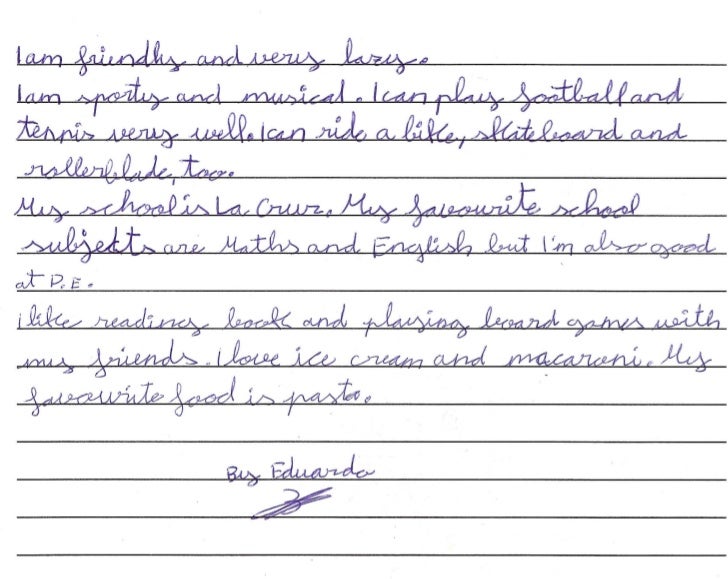 I am friendly and very lazy.
I am sporty and musical. I can play football and
tennis very well. I can ride a bike, skateboard and
rollerblade, too.
My school is La Cruz. My favourite school
subjects are Maths and English but I'm also good
at P.E.
i like reading book and playing board games with
my friends. I love ice cream and macaroni. My
favourite food is pasta.
By Eduardo